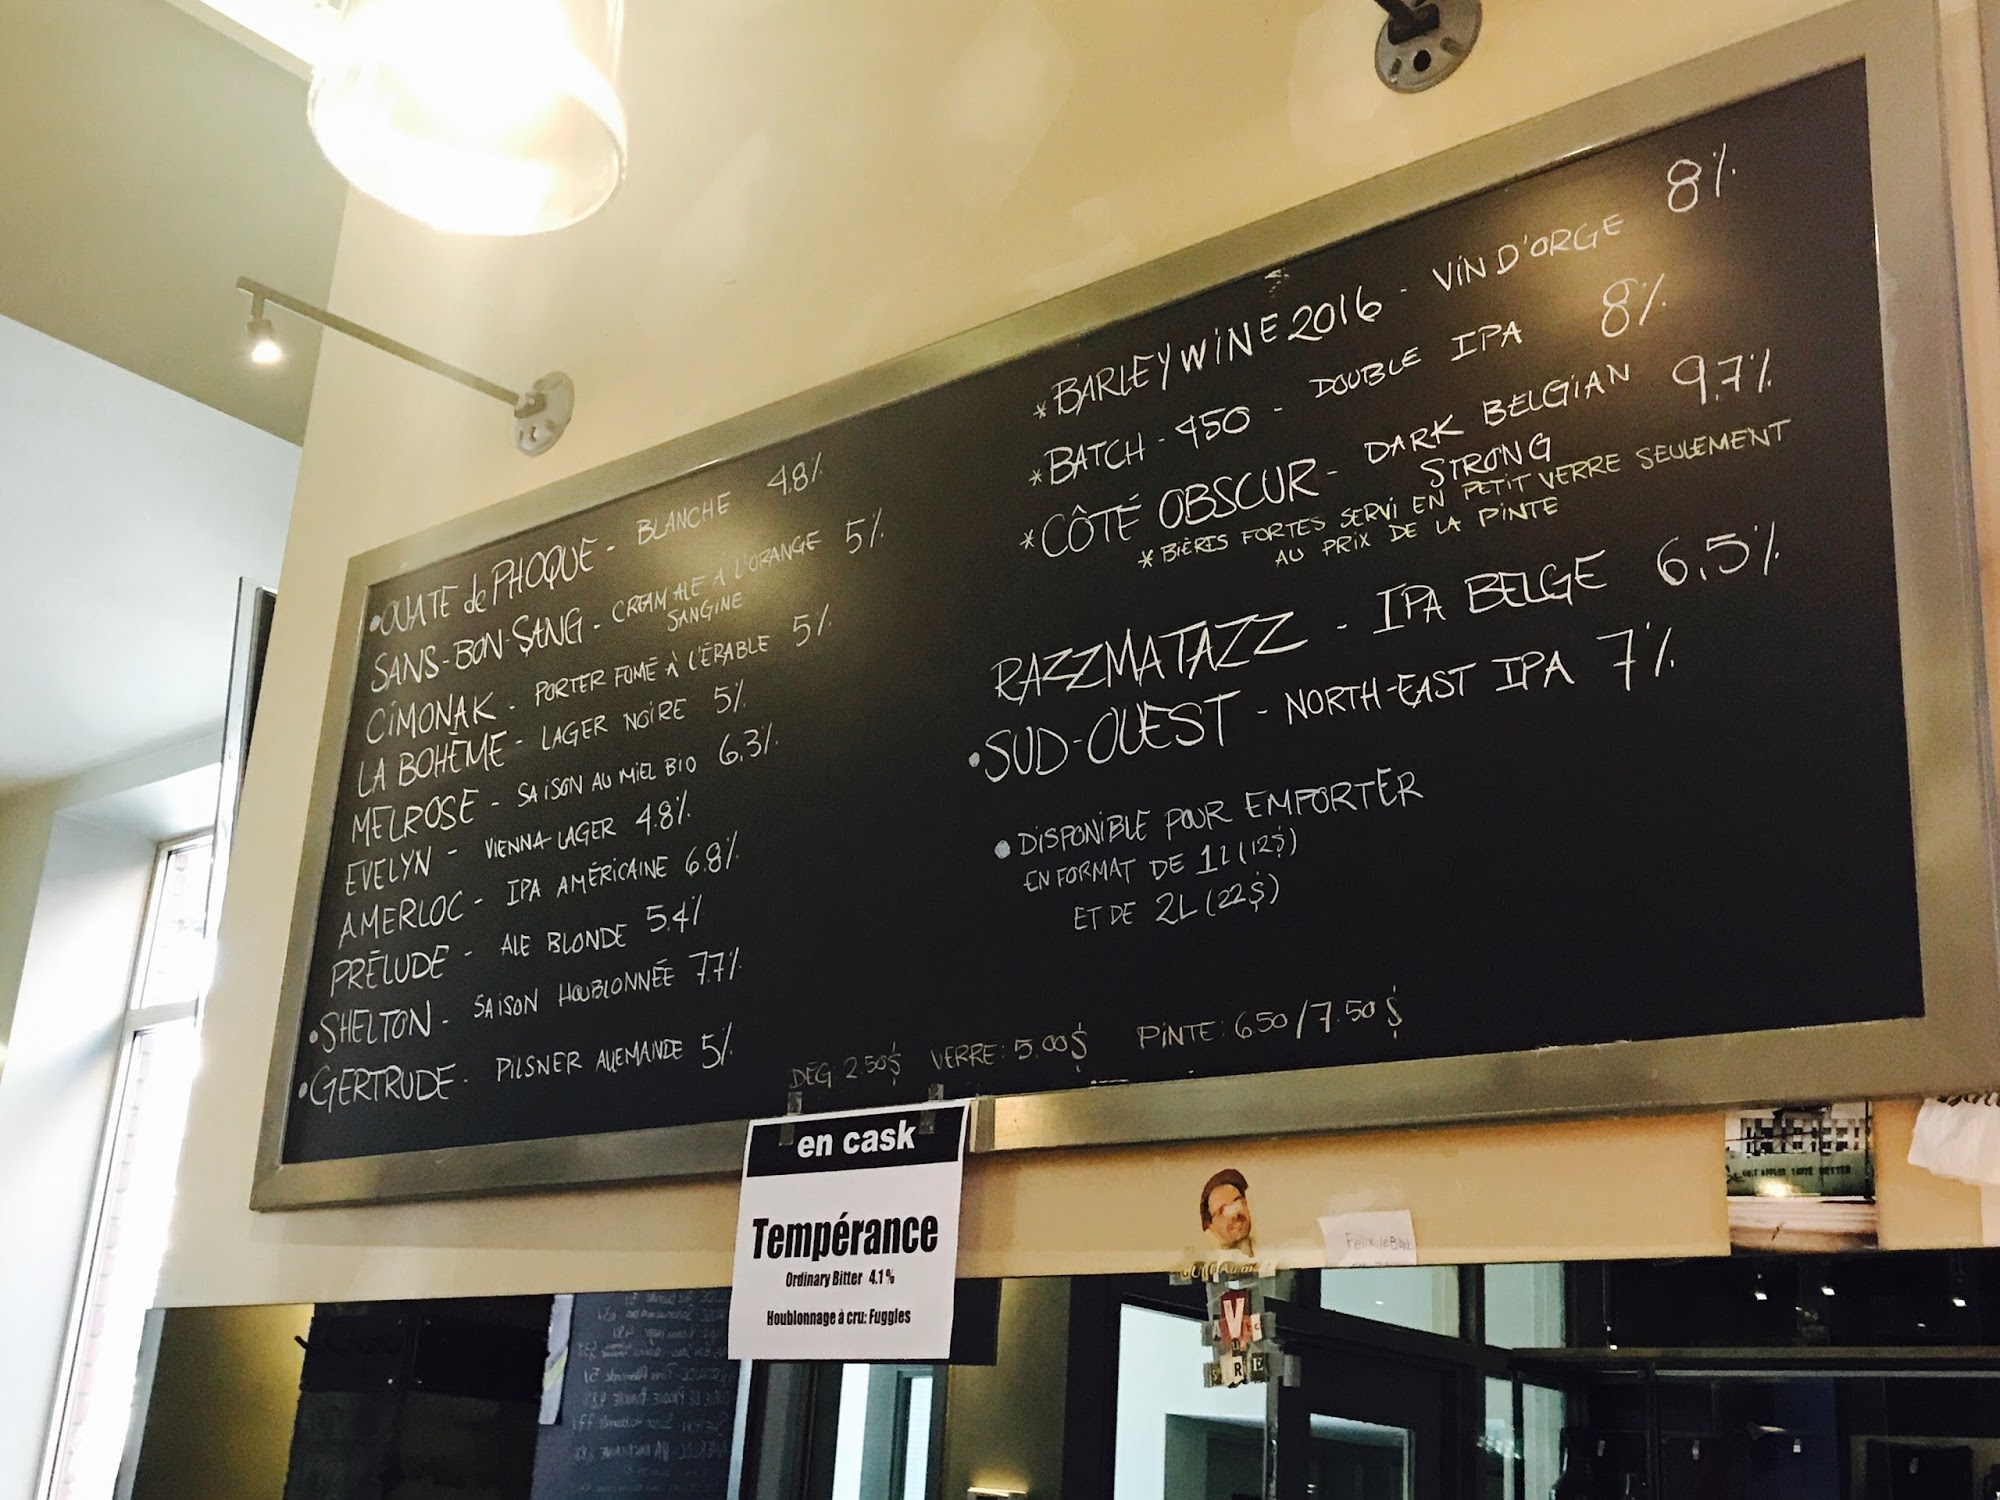 •OUATE de PHOQUE - BLANCHE 4.8%
SANS-BON-SANG - CREAM ALE À L'ORANGE 5%
SANGINE
CIMONAK - PORTER FUMÉ À L'ÉRABLE 5%
LA BOHÈME - LAGER NOIRE 5%
MELROSE - SAISON AU MIEL BIO 6,3%
EVELYN - VIENNA LAGER 4.8%
AMERLOC - IPA AMÉRICAINE 6.8%
PRÉLUDE - ALE BLONDE 5.4%
•SHELTON - SAISON HOUBLONNÉE 7.7%
•GERTRUDE - PILSNER ALLEMANDE 5%
*BARLEYWINE 2016 - VIN D'ORGE 8%
*BATCH - 450 - DOUBLE IPA 8%
*CÔTÉ OBSCUR - DARK BELGIAN 9,7%
STRONG
*BIÈRES FORTES SERVI EN PETIT VERRE SEULEMENT
AU PRIX DE LA PINTE
RAZZMATAZZ - IPA BELGE 6,5%
•SUD-OUEST - NORTH-EAST IPA 7%
• DISPONIBLE POUR EMPORTER
EN FORMAT DE 1L (12$)
ET DE 2L (22$)
DÉG: 2.50$ VERRE: 5.00$ PINTE: 6.50/7.50$
en cask
Tempérance
Ordinary Bitter 4.1%
Houblonnage à cru: Fuggles